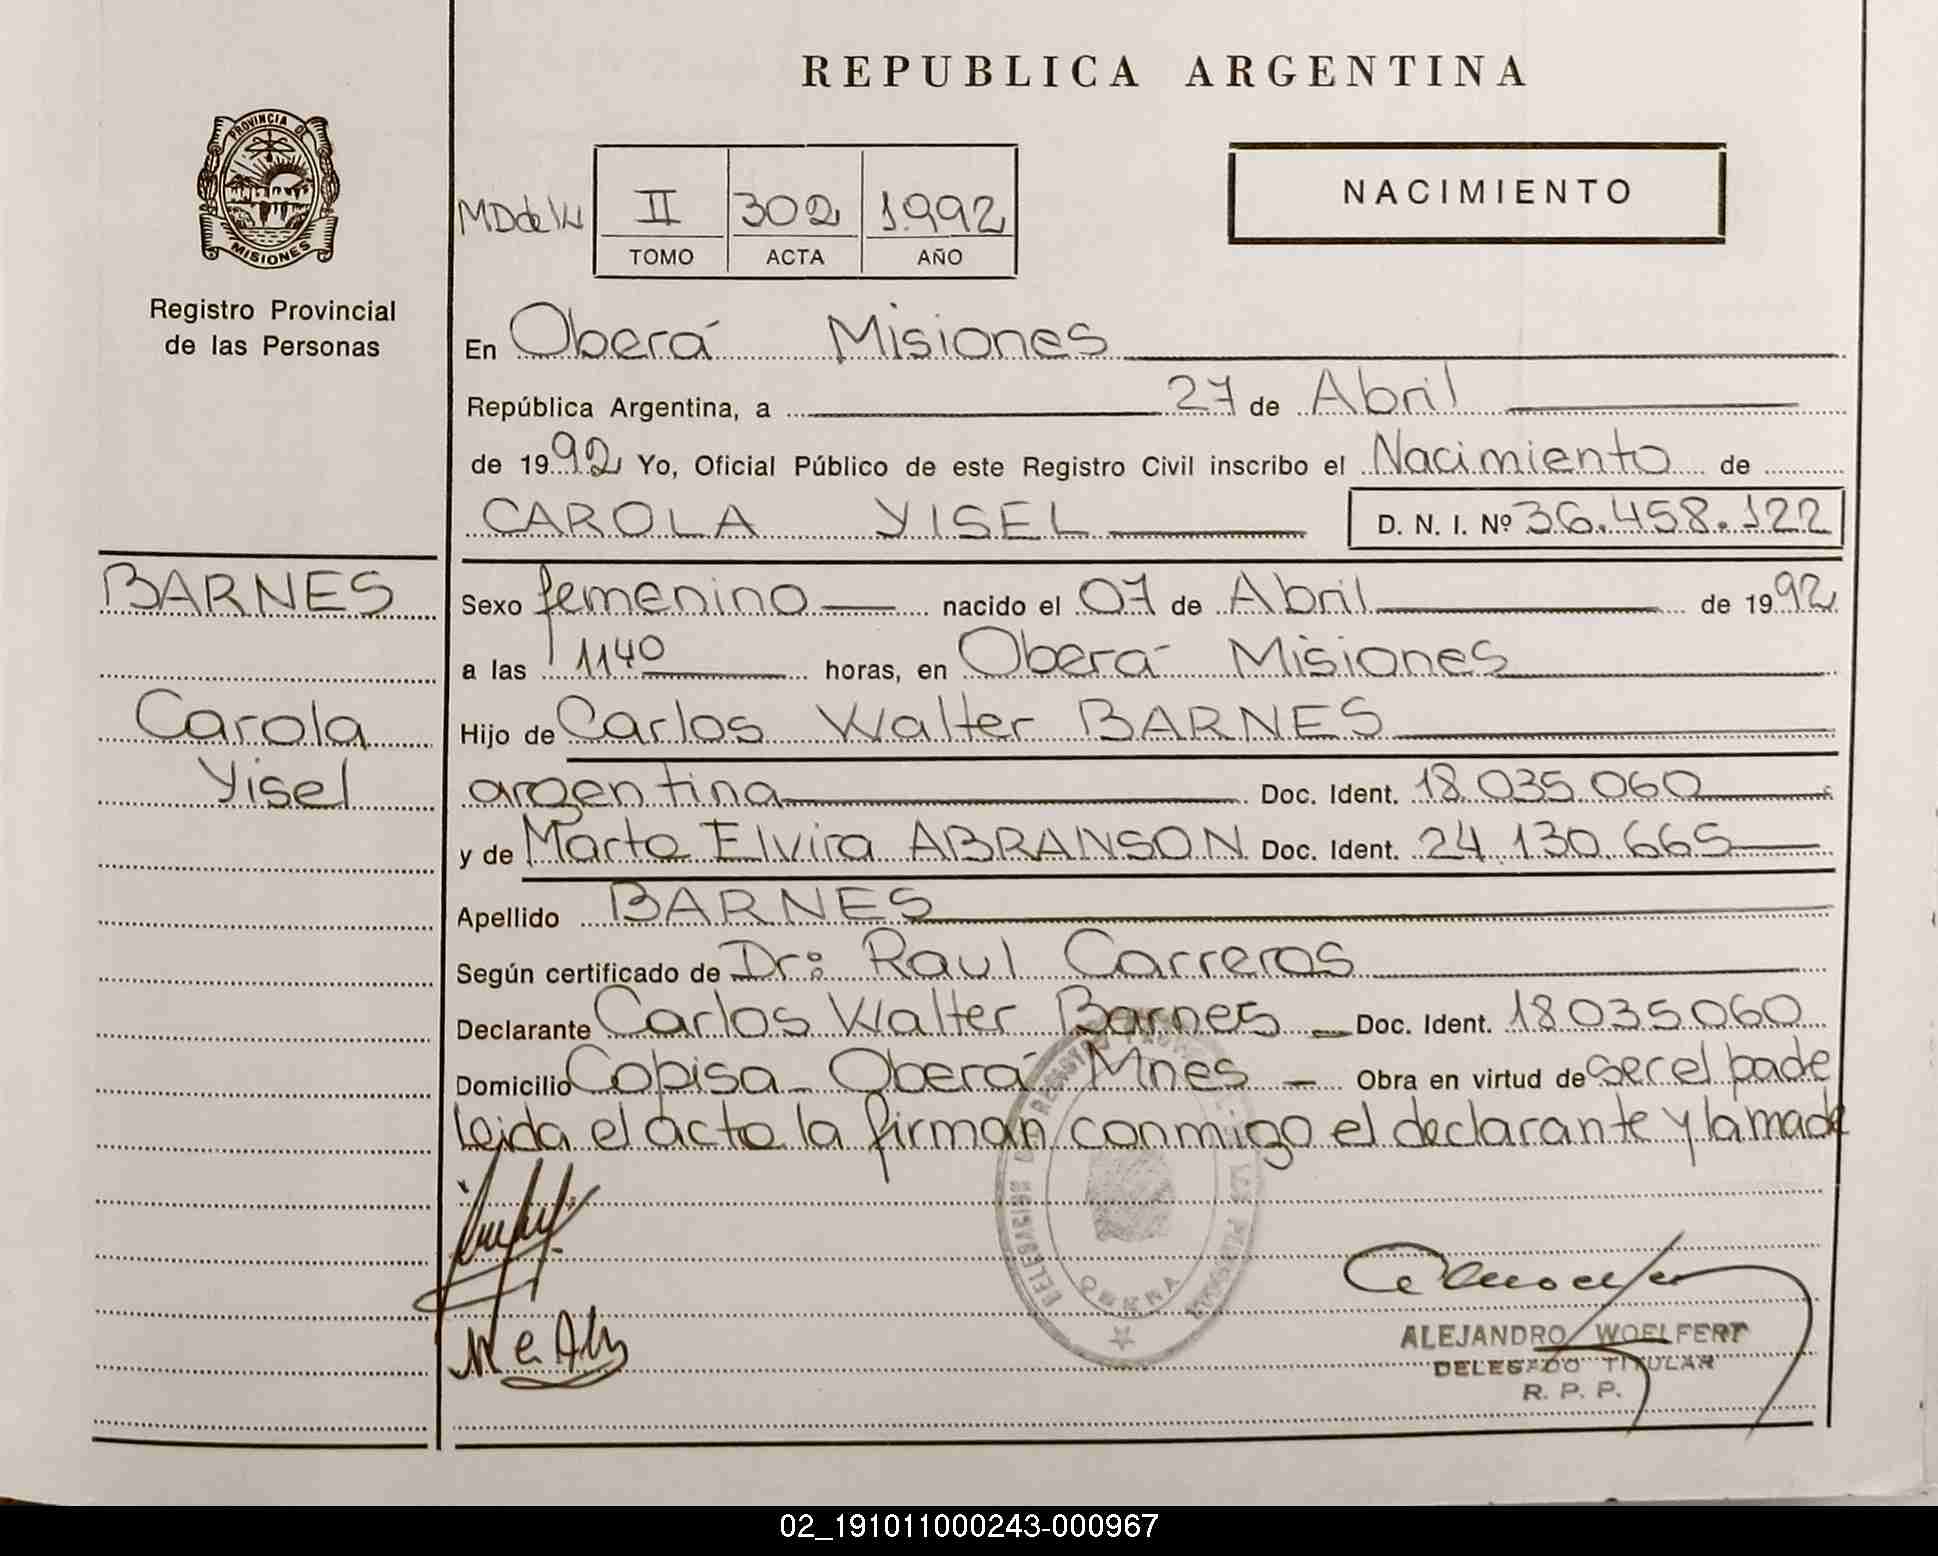 REPUBLICA ARGENTINA
PROVINCIA DE
MISIONES
Registro Provincial
de las Personas
II 302 1.992
TOMO ACTA AÑO
NACIMIENTO
En Oberá Misiones
República Argentina, a 27 de Abril
de 1992 Yo, Oficial Público de este Registro Civil inscribo el Nacimiento de
CAROLA YISEL D. N. I. Nº 36.458.122
BARNES
Carola
Yisel
Sexo femenino nacido el 07 de Abril de 1992
a las 1140 horas, en Oberá Misiones
Hijo de Carlos Walter BARNES
argentina Doc. Ident. 18.035.060
y de Marta Elvira ABRANSON Doc. Ident. 24.130.665
Apellido BARNES
Según certificado de Dr: Raul Carreros
Declarante Carlos Walter Barnes Doc. Ident. 18035060
Domicilio Copisa - Oberá Mnes - Obra en virtud de ser el padre
Leida el acta la firman conmigo el declarante y la madre
OBERA
ALEJANDRO WOELFERT
DELEGADO TITULAR
R. P. P.
02_191011000243-000967